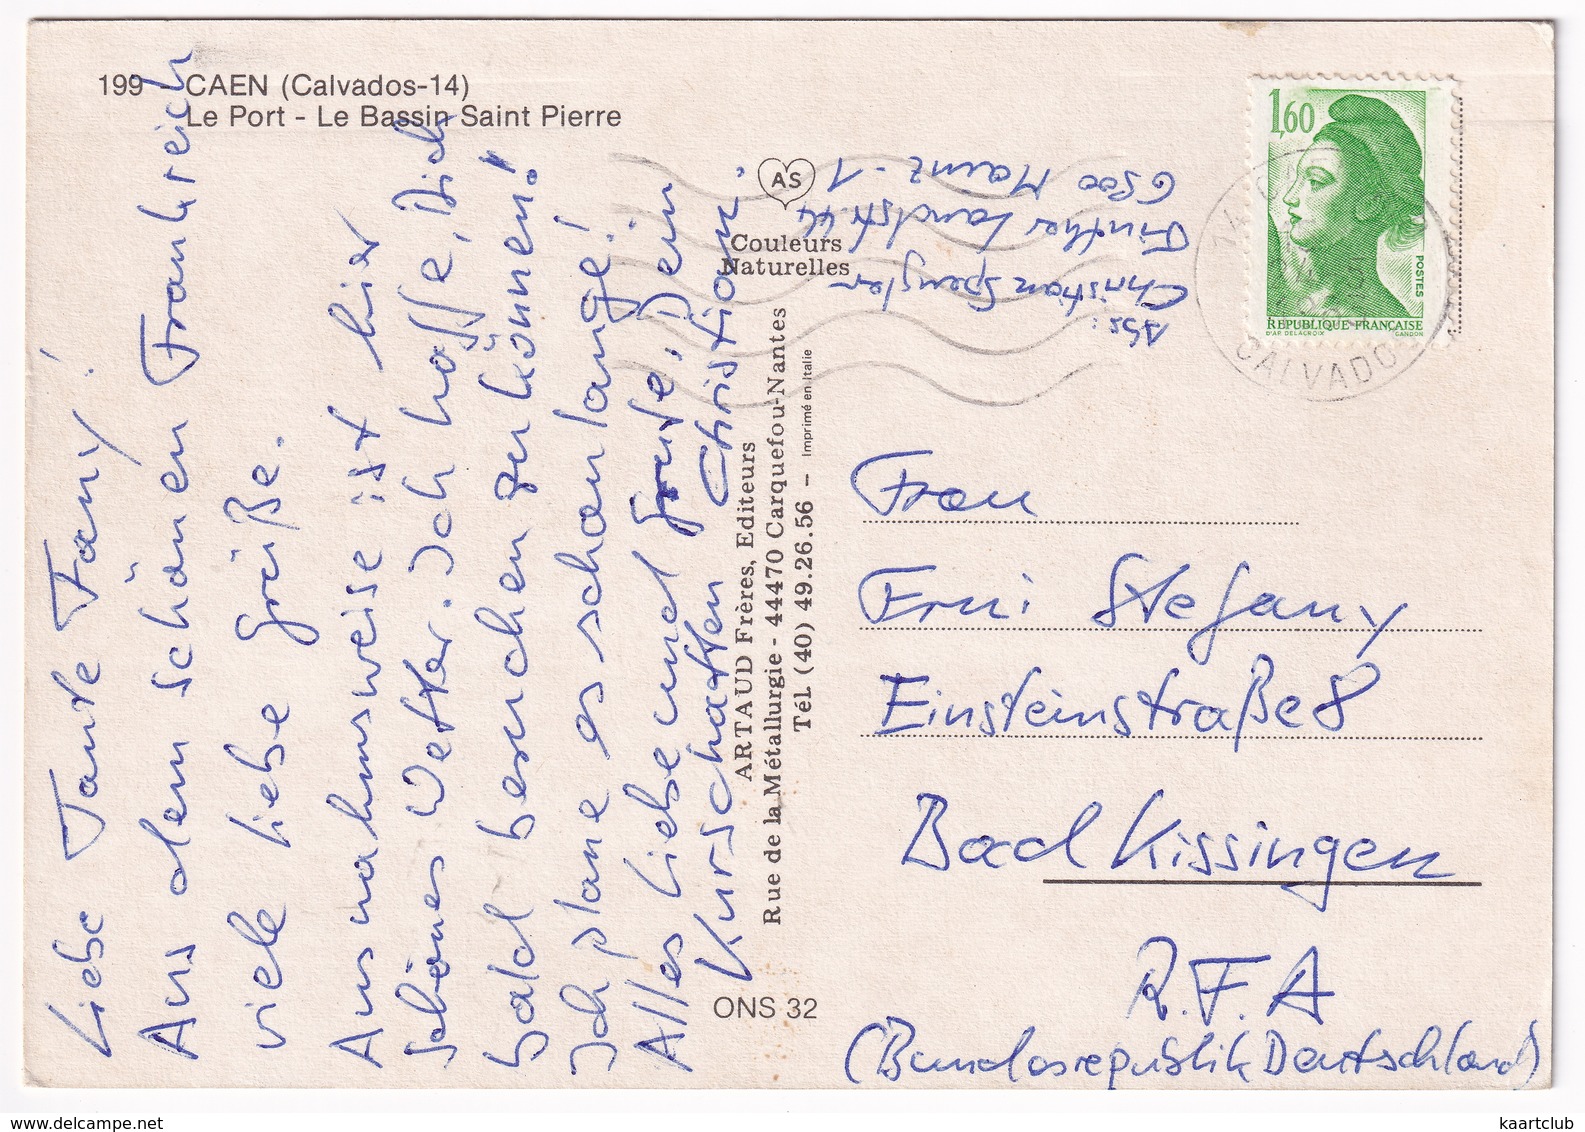 199 - CAEN (Calvados-14)
Le Port - Le Bassin Saint Pierre
Liebe Tante Fany!
Aus dem schönen Frankreich
viele liebe Grüße.
Ausnahmsweise ist hier
schönes Wetter. Ich hoffe, Dich
bald besuchen zu können!
Ich plane es schon lange!
Alles Liebe und Gute, Dein
Kurschatten Christian.
AS
Couleurs
Naturelles
ARTAUD Frères, Editeurs
Rue de la Métallurgie - 44470 Carquefou-Nantes
Tél. (40) 49.26.56 - Imprimé en Italie
ONS 32
Abs:
Christian Spengler
Finther Landstr. 44
6500 Mainz-1
1,60
POSTES
REPUBLIQUE FRANÇAISE
D'AP. DELACROIX GANDON
CALVADOS
Frau
Erni Stefany
Einsteinstraße 8
Bad Kissingen
R.F.A
(Bundesrepublik Deutschland)
www.delcampe.net
kaartclub